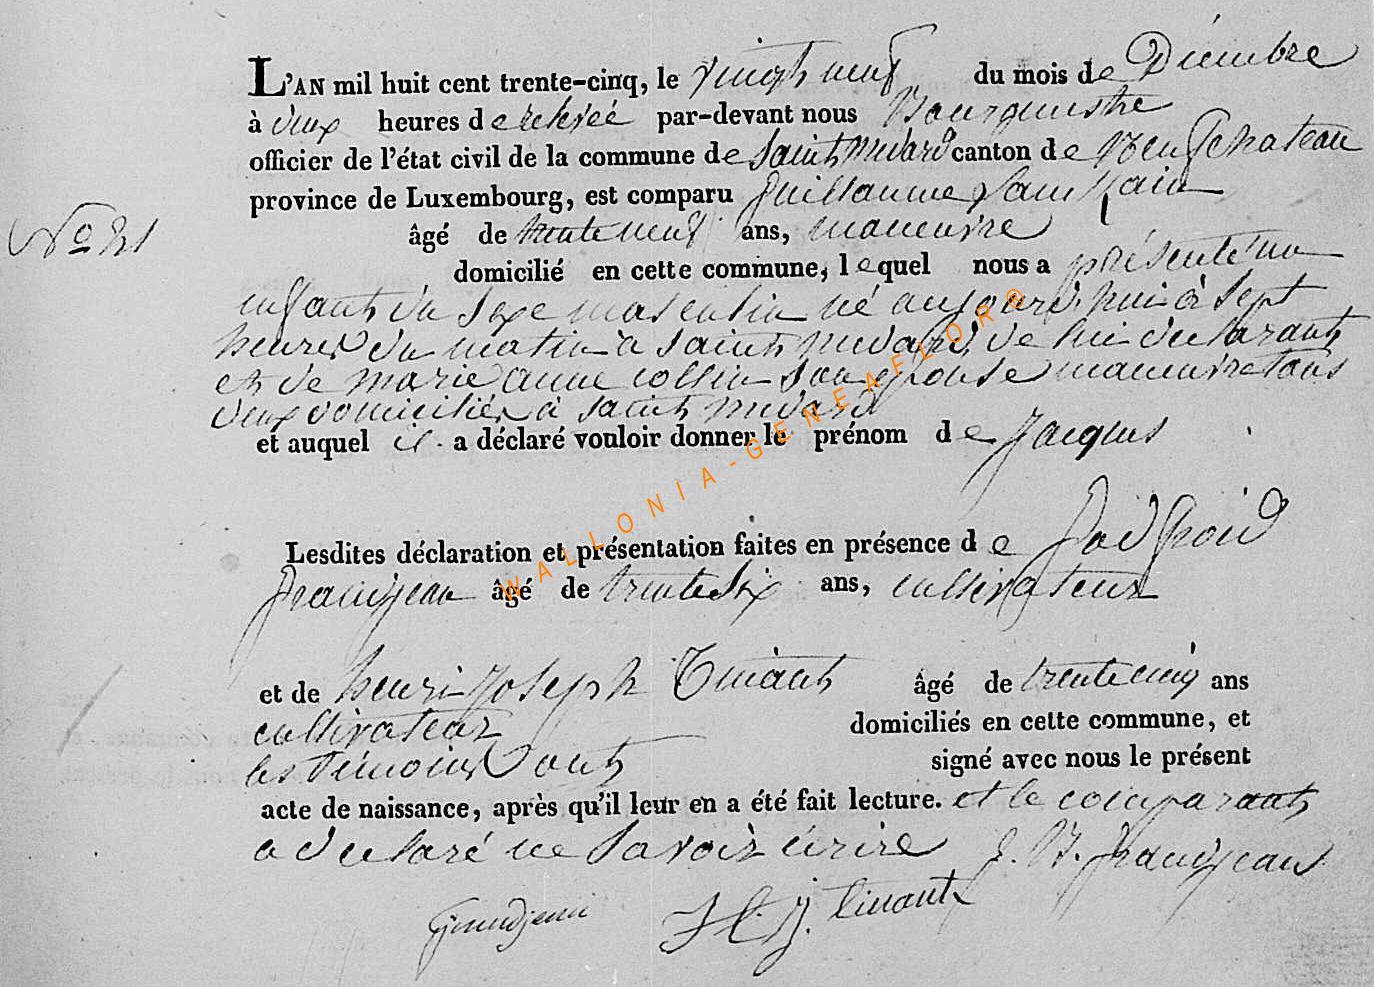 L'AN mil huit cent trente-cinq, le vingt neuf du mois de Décembre
à deux heures de relevée par-devant nous Bourguestre
officier de l'état civil de la commune de Saint Médard canton de Neufchateau
province de Luxembourg, est comparu Guillaume
N° 31
âgé de trente neuf ans, maneuvre
domicilié en cette commune, lequel nous a présenté un
enfant du sexe masculin né aujourd'hui à sept
heures du matin à saint médard, de lui déclarant
et de marie anne collin son epouse maneuvre tous
deux domiciliés à saint médard
et auquel il a déclaré vouloir donner le prénom de Jacques
Lesdites déclaration et présentation faites en présence de
Grandjean âgé de trente six ans, cultivateur
et de henri Joseph Tinant âgé de trente cinq ans
cultivateur domiciliés en cette commune, et
les témoins ont signé avec nous le présent
acte de naissance, après qu'il leur en a été fait lecture. et le comparant
a déclaré ne savoir écrire J. B. Grandjean
Grandjean H. J. Tinant
WALLONIA-GENEAFLOR®